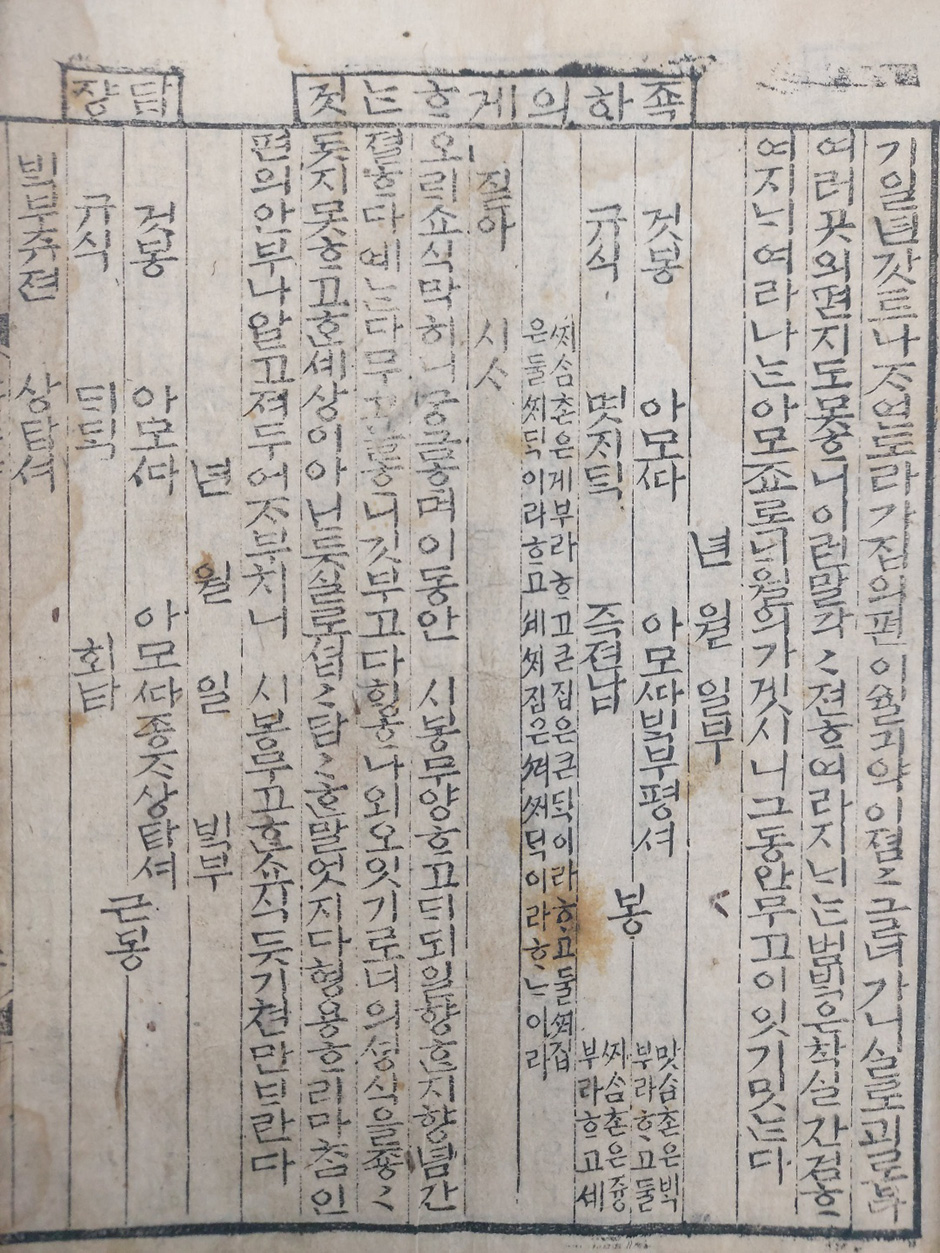 죡하의게ᄒᆞᄂᆞᆫ것
답쟝
기일념갓트나ᄌᆞ연도라가집의편이 가니실로괴롭다
여러곳의편지도못ᄒᆞ니이런말각〻젼ᄒᆞ여라지ᄂᆡᄂᆞᆫ범ᄇᆡᆨ은착실자검ᄒᆞ
여지ᄂᆡ여라나ᄂᆞᆫ아모죠로ᄂᆡ월의가겟시니그동안무고이잇기밋ᄂᆞᆫ다
년 월 일부
것봉 아모ᄯᅡ 아모ᄯᅡᄇᆡᆨ부평셔 봉
규식 몃지ᄃᆡᆨ 즉젼납
맛삼촌은ᄇᆡᆨ
부라ᄒᆞ고둘
ᄶᅢ삼촌은즁
부라ᄒᆞ고셰
ᄶᅢ삼촌은계부라ᄒᆞ고큰집은큰ᄃᆡᆨ이라ᄒᆞ고둘ᄶᅢ집
은둘ᄶᅢᄃᆡᆨ이라ᄒᆞ고셰ᄶᅢ집은셰ᄶᅢᄃᆡᆨ이라ᄒᆞᄂᆞ이라
질아 시ᄉᆞ
오ᄅᆡ쇼식막히니궁금ᄒᆞ며이동안 시봉무양ᄒᆞ고ᄃᆡ되일향ᄒᆞᆫ지향념간
졀ᄒᆞ다예ᄂᆞᆫ다무고ᄒᆞ니깃부고다ᄒᆡᆼᄒᆞ나외오잇기로너의셩식을죵〻
듯지못ᄒᆞ고ᄒᆞᆫ셰상이아닌듯실로셥〻답〻ᄒᆞᆫ말엇지다형용ᄒᆞ리마ᄎᆞᆷ인
편의안부나알고져두어ᄌᆞ부치니 시봉무고ᄒᆞᆫ쇼식듯기쳔만ᄇᆞ란다
년 월 일 ᄇᆡᆨ부
것봉 아모ᄯᅡ 아모ᄯᅡ죵ᄌᆞ상답셔 근봉
규식 ᄃᆡᄃᆡᆨ 회납
ᄇᆡᆨ부쥬젼 상답셔